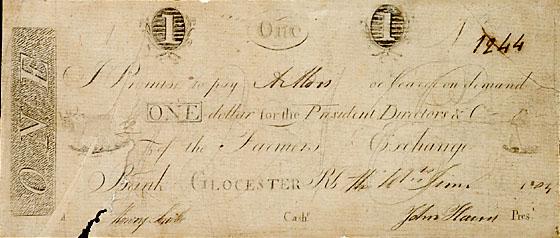 1 One 1
1244
ONE
I Promise to pay or bearer on demand
ONE dollar for the President Directors & Co
of the Farmers Exchange
Bank GLOCESTER
Cashr John Harris Pres